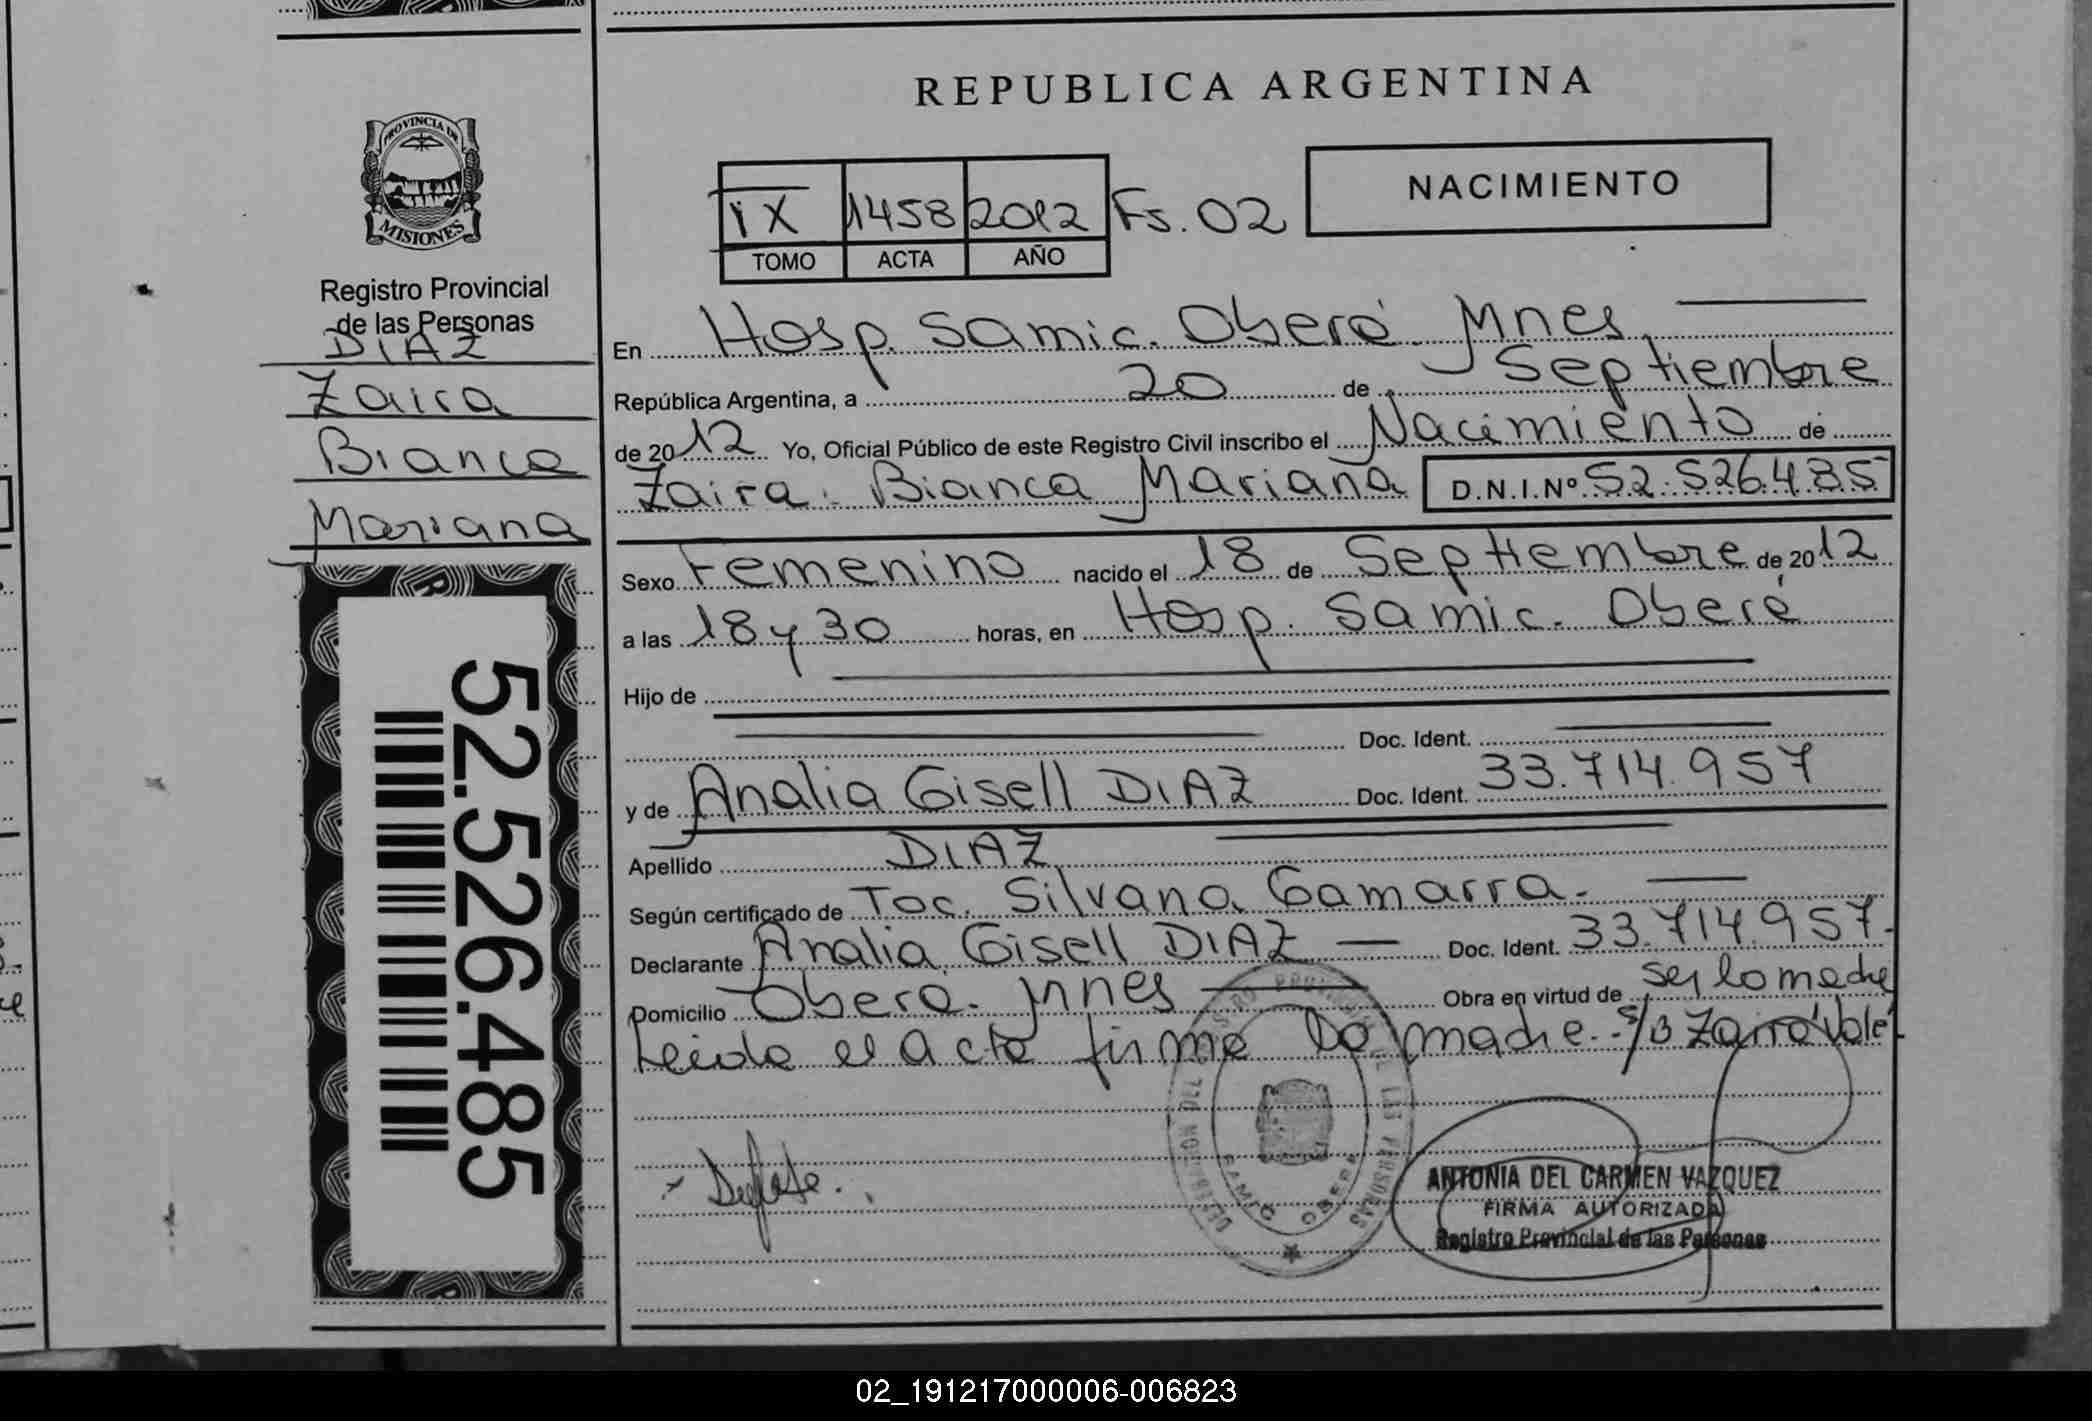 REPUBLICA ARGENTINA
PROVINCIA DE
MISIONES
Registro Provincial
de las Personas
DIAZ
Zaira
Bianca
Mariana
52.526.485
IX 1458 2012 Fs. 02
TOMO ACTA AÑO
NACIMIENTO
En Hosp. Samic. Oberá Mnes
República Argentina, a 20 de Septiembre
de 2012 Yo, Oficial Público de este Registro Civil inscribo el Nacimiento de
Zaira Bianca Mariana D.N.I.Nº 52.526.485
Sexo Femenino nacido el 18 de Septiembre de 2012
a las 18 y 30 horas, en Hosp. Samic. Oberá
Hijo de
Doc. Ident.
y de Analia Gisell DIAZ Doc. Ident. 33.714.957
Apellido DIAZ
Según certificado de Toc. Silvana Gamarra.
Declarante Analia Gisell DIAZ Doc. Ident. 33.714.957.
Domicilio Obera. Mnes Obra en virtud de ser la madre
Leida el acta firma la madre. S/B Zaira Vale
REGISTRO PROVINCIAL DE LAS PERSONAS
SAMIC OBERA
ANTONIA DEL CARMEN VAZQUEZ
FIRMA AUTORIZADA
Registro Provincial de las Personas
02_191217000006-006823